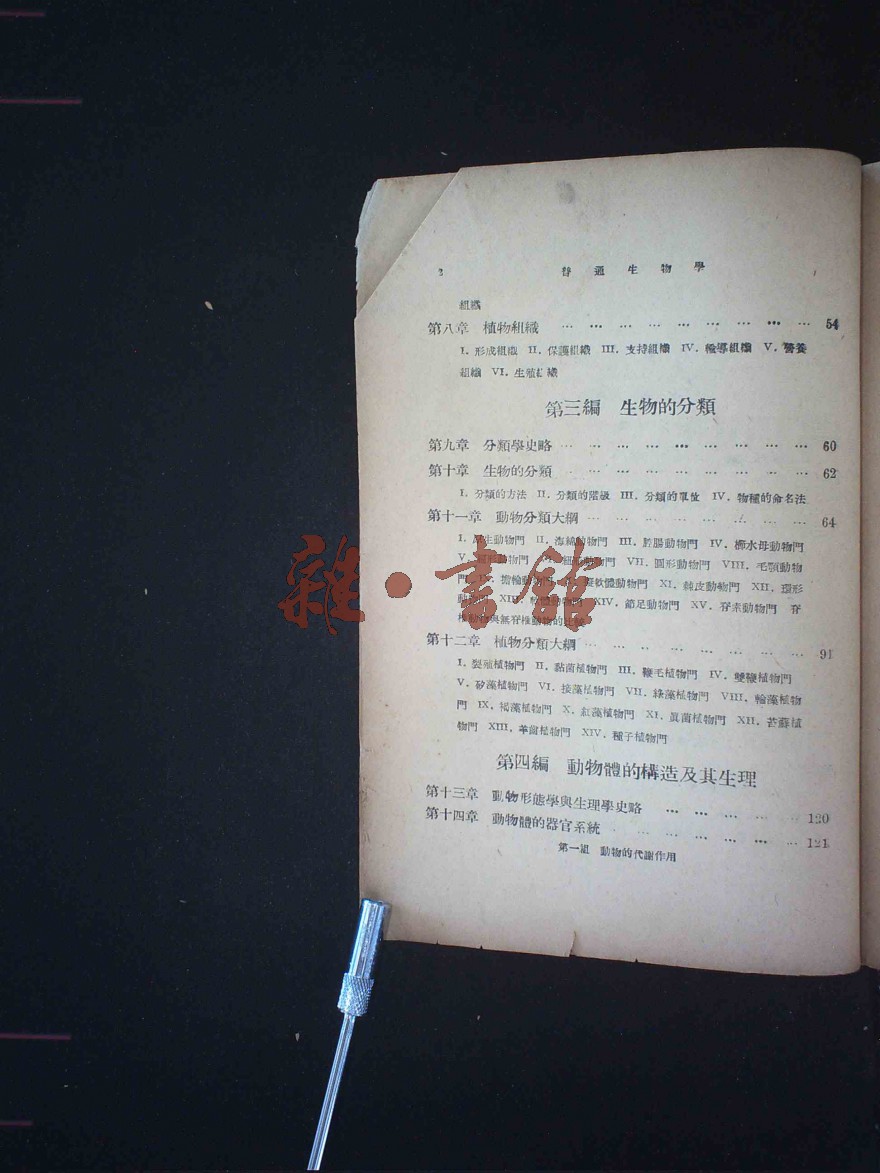 2 普通生物學
組織
第八章 植物組織 … … … … … … … … … 54
I. 形成組織 II. 保護組織 III. 支持組織 IV. 輸導組織 V. 營養
組織 VI. 生殖組織
第三編 生物的分類
第九章 分類學史略 … … … … … … … … … 60
第十章 生物的分類 … … … … … … … … … 62
I. 分類的方法 II. 分類的階級 III. 分類的單位 IV. 物種的命名法
第十一章 動物分類大綱 … … … … … … … … 64
I. 原生動物門 II. 海綿動物門 III. 腔腸動物門 IV. 櫛水母動物門
V. 動物門 動物門 VII. 圓形動物門 VIII. 毛顎動物
門 IX. 擔輪動物門 X. 擬軟體動物門 XI. 棘皮動物門 XII. 環形
動物門 XIII. 軟體動物門 XIV. 節足動物門 XV. 脊索動物門 脊
椎動物與無脊椎動物的比較
第十二章 植物分類大綱 … … … … … … … … 91
I. 裂殖植物門 II. 黏菌植物門 III. 鞭毛植物門 IV. 雙鞭植物門
V. 矽藻植物門 VI. 接藻植物門 VII. 綠藻植物門 VIII. 輪藻植物
門 IX. 褐藻植物門 X. 紅藻植物門 XI. 眞菌植物門 XII. 苔蘚植
物門 XIII. 羊齒植物門 XIV. 種子植物門
第四編 動物體的構造及其生理
第十三章 動物形態學與生理學史略 … … … … … 120
第十四章 動物體的器官系統 … … … … … … … 121
第一組 動物的代謝作用
雜·書館